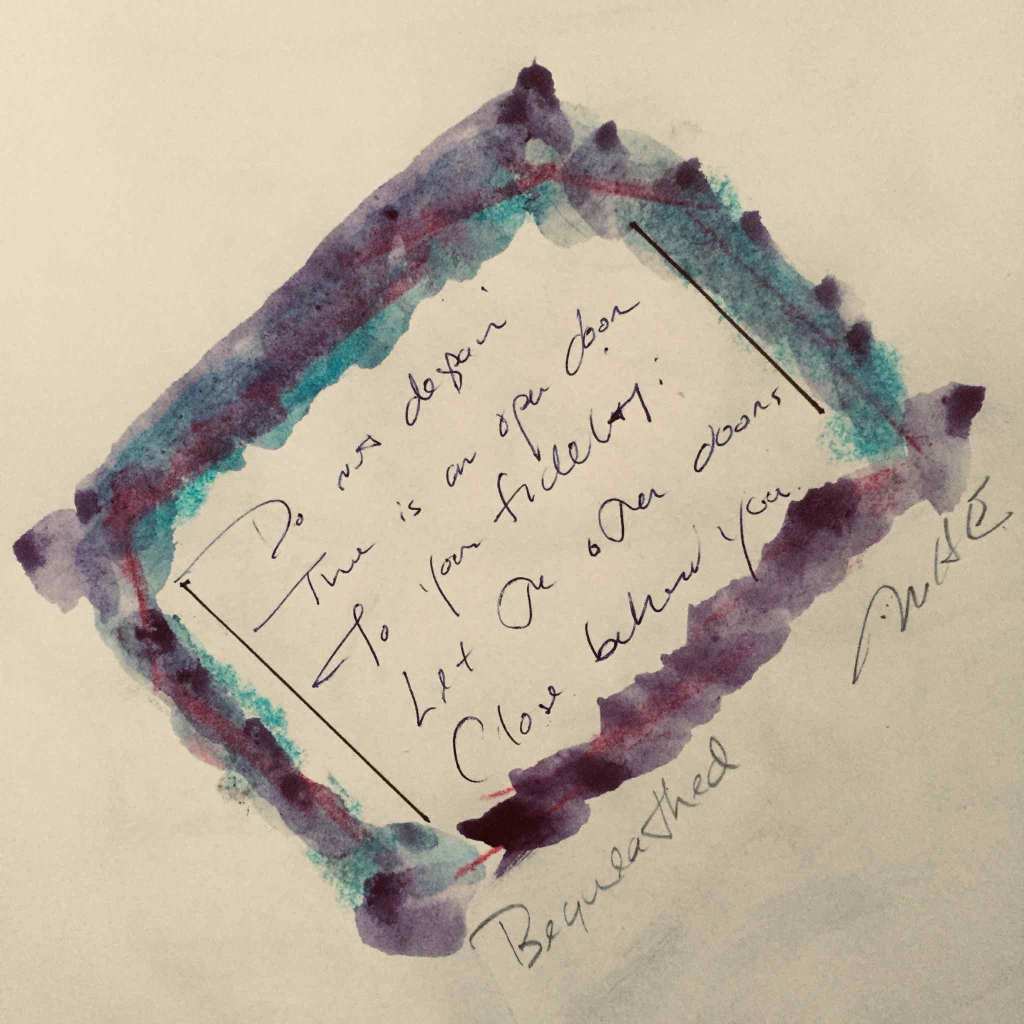 Do not despair
There is an open door
To your fidelity.
Let the other doors
Close behind you.
Bequeathed